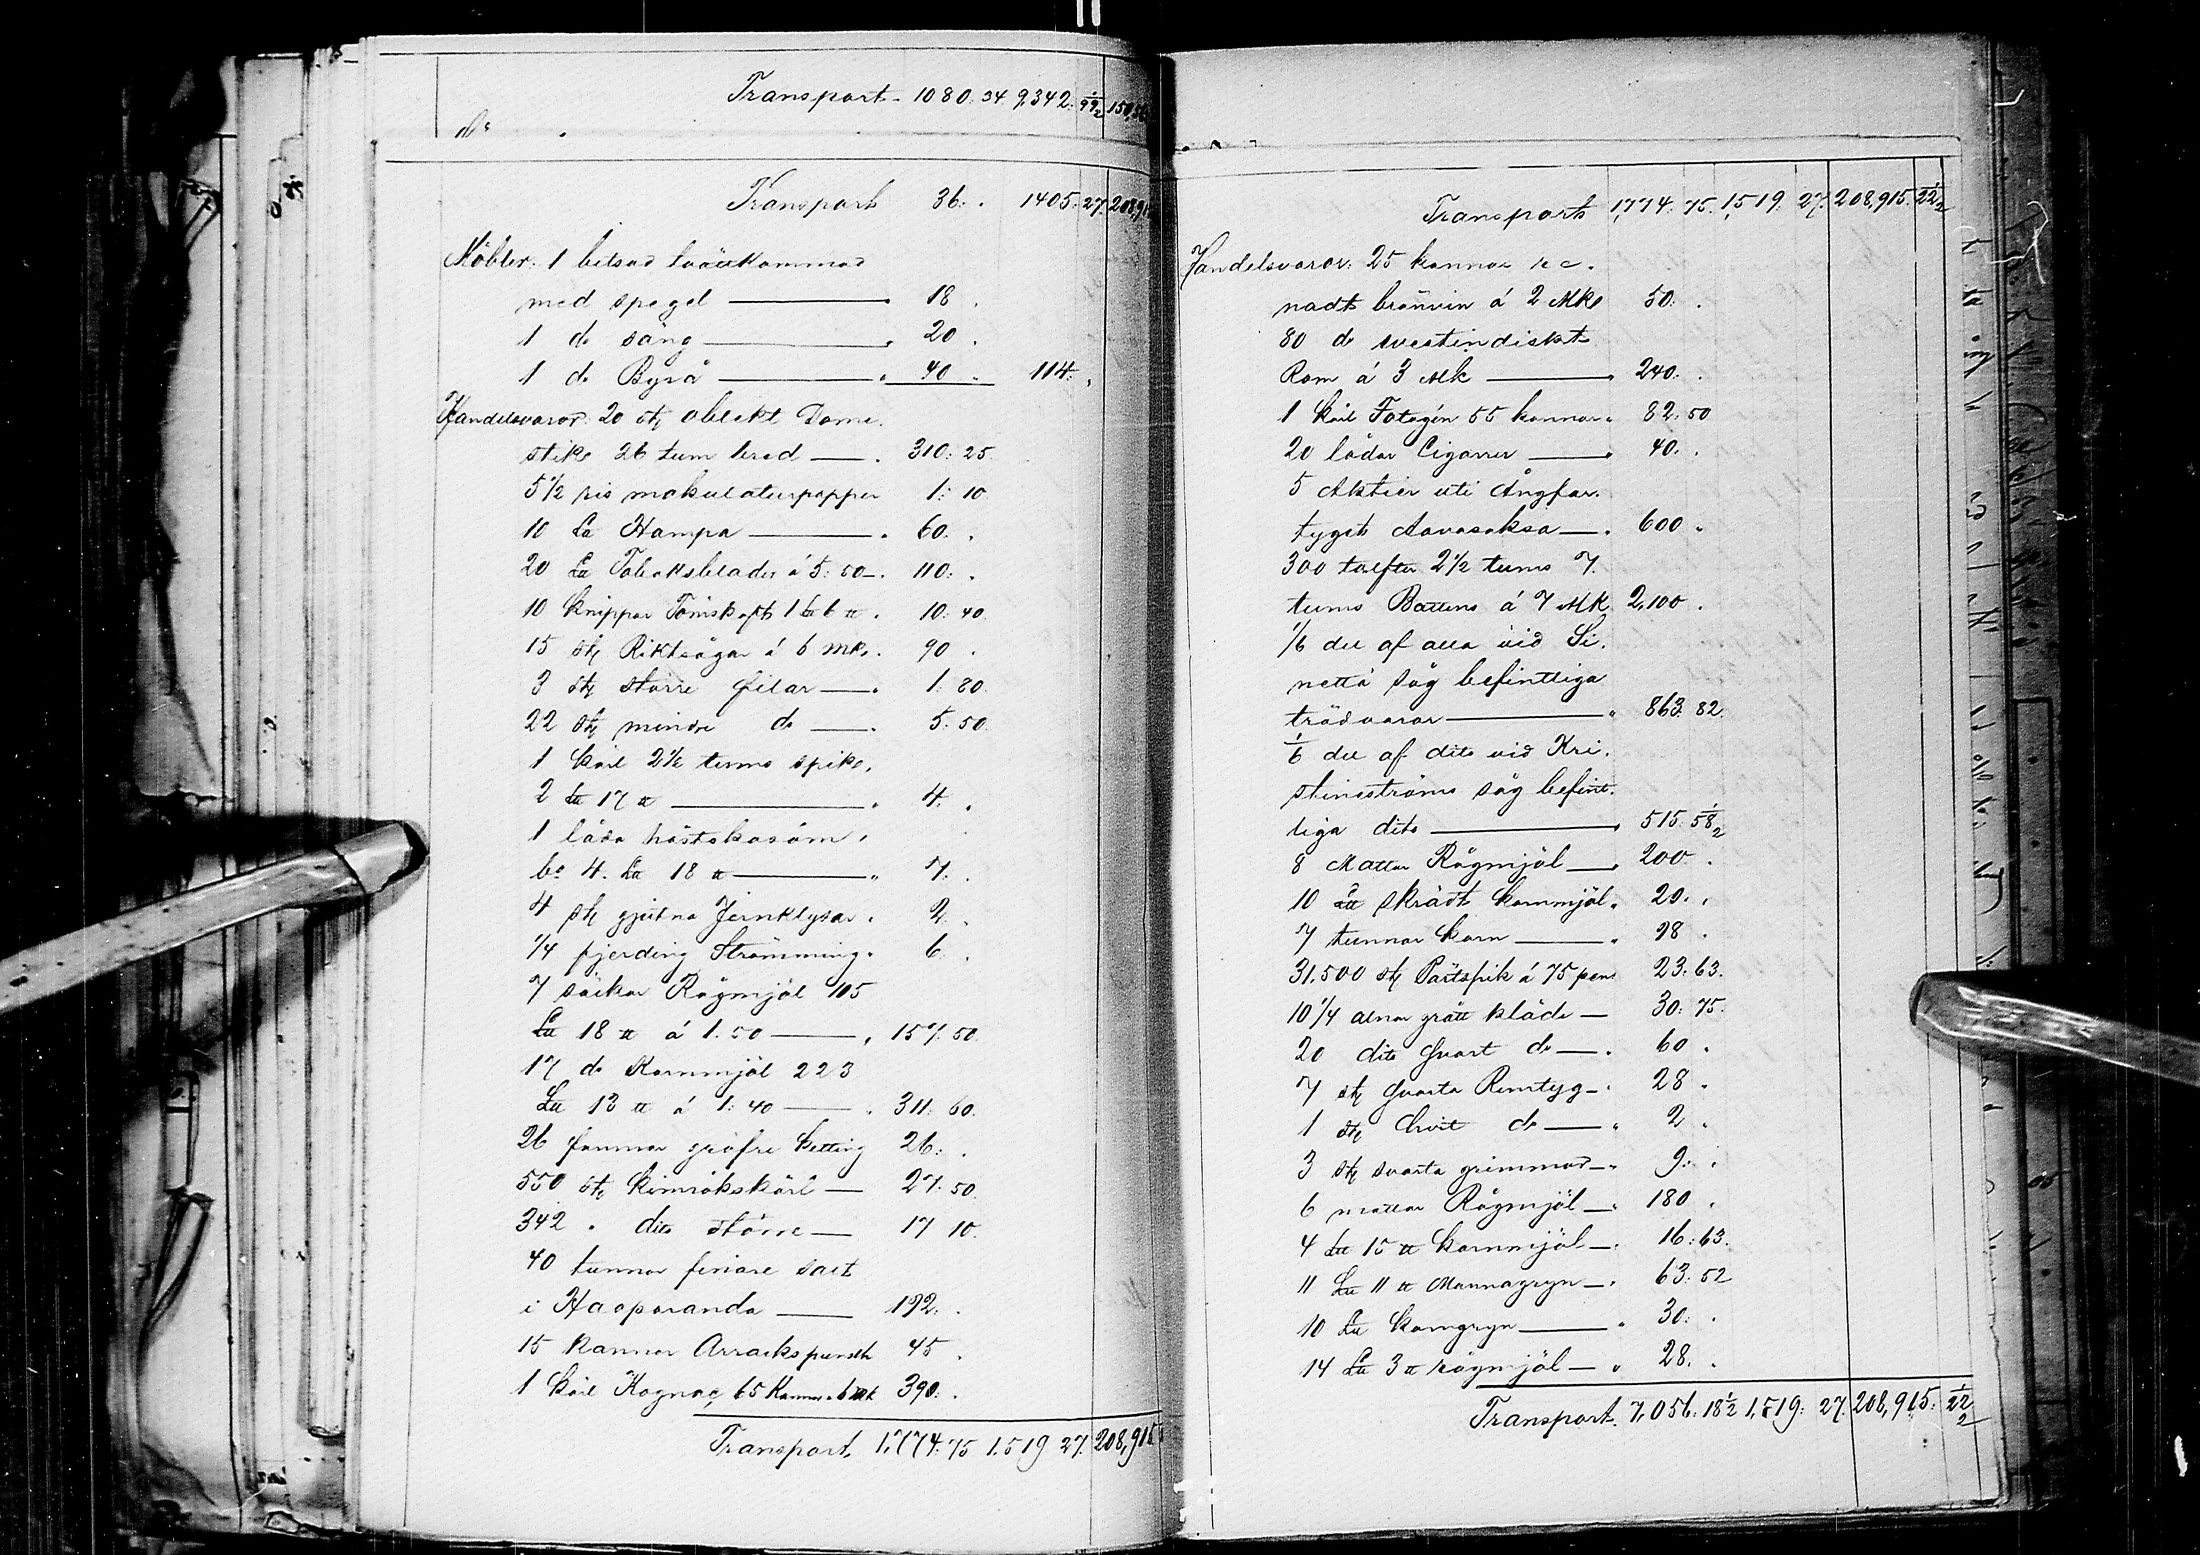 Transport 1080. 34 9,342.
Transport 36. 1405. 27. 208,91
Möbler. 1 betsad
med spegel 18
1 do säng 20
1 do Byrå 40 114.
Handelsvaror. 20 st oblekt Dome.
stiks 26 tum bred 310: 25
5 1/2 ris makulaturpapper 1: 10
10 L℔ Hampa 60.
20 L℔ Tobaksblader á 5: 50 110:
10 knippor Tömskaft 1 L℔ 6 ℔ 10: 40
15 st Riktsågar á 6 mk. 90
3 st större filar 1. 80
22 st mindre do 5. 50
1 kärl 2 1/2 tums spik.
2 L℔ 17 ℔ 4.
1 låda hästskosöm.
bo 4. L℔ 18 ℔ 7.
4 st gjutna Jernklysar 2.
1/4 fjerding Strömming 6.
7 säckar Rågmjöl 105
L℔ 18 ℔ á 1. 50 157. 50
17 do Kornmjöl 223
L℔ 13 ℔ á 1. 40 311: 60.
26 famnar gröfre ketting 26:
550 st Kimrökskäril 27. 50
342 " dito större 17 10.
40 tunnor finare salt
i Haaparanda 192.
15 kannor Arrackspunsch 45
1 kärl Kognac, 65 Kannor á 6 mk 390.
Transport 1,774. 75 1.519 27. 208,915
Transport 1,774. 75. 1,519. 27. 208,915. 22 1/2
Handelsvaror: 25 kannor re-
nadt bränvin á 2 Mk 50.
80 do vestindiskt
Rom á 3 Mk 240.
1 kärl Fotogén 55 kannor 82. 50
20 lådor Cigarrer 40.
5 Aktier uti Ångfar-
tyget Aavasaksa 600
300 tolfter 2 1/2 tums 7.
tums Battens á 7 Mk 2,100.
1/6 del af alla vid Si-
nettä såg befintliga
trädvaror 863. 82.
1/6 del af dito vid Kri-
stineströms såg befint-
liga dito 515. 58 1/2
8 Mattor Rågmjöl 200.
10 L℔ skrädt kornmjöl 20.
7 tunnor korn 98
31.500 st Pärtspik á 75 pen 23: 63.
10 1/4 alnar grått kläde 30: 75.
20 dito svart do 60
7 st svarta Remtyg 28
1 st hvit do 2
3 st svarta grimmor 9:
6 mattor Rågmjöl 180
4 L℔ 15 ℔ kornmjöl 16: 63.
11 L℔ 11 ℔ Mannagryn 63: 52
10 L℔ korngryn 30.
14 L℔ 3 ℔ rågmjöl 28.
Transport. 7,056: 18 1/2 1,519: 27. 208,915: 22 1/2